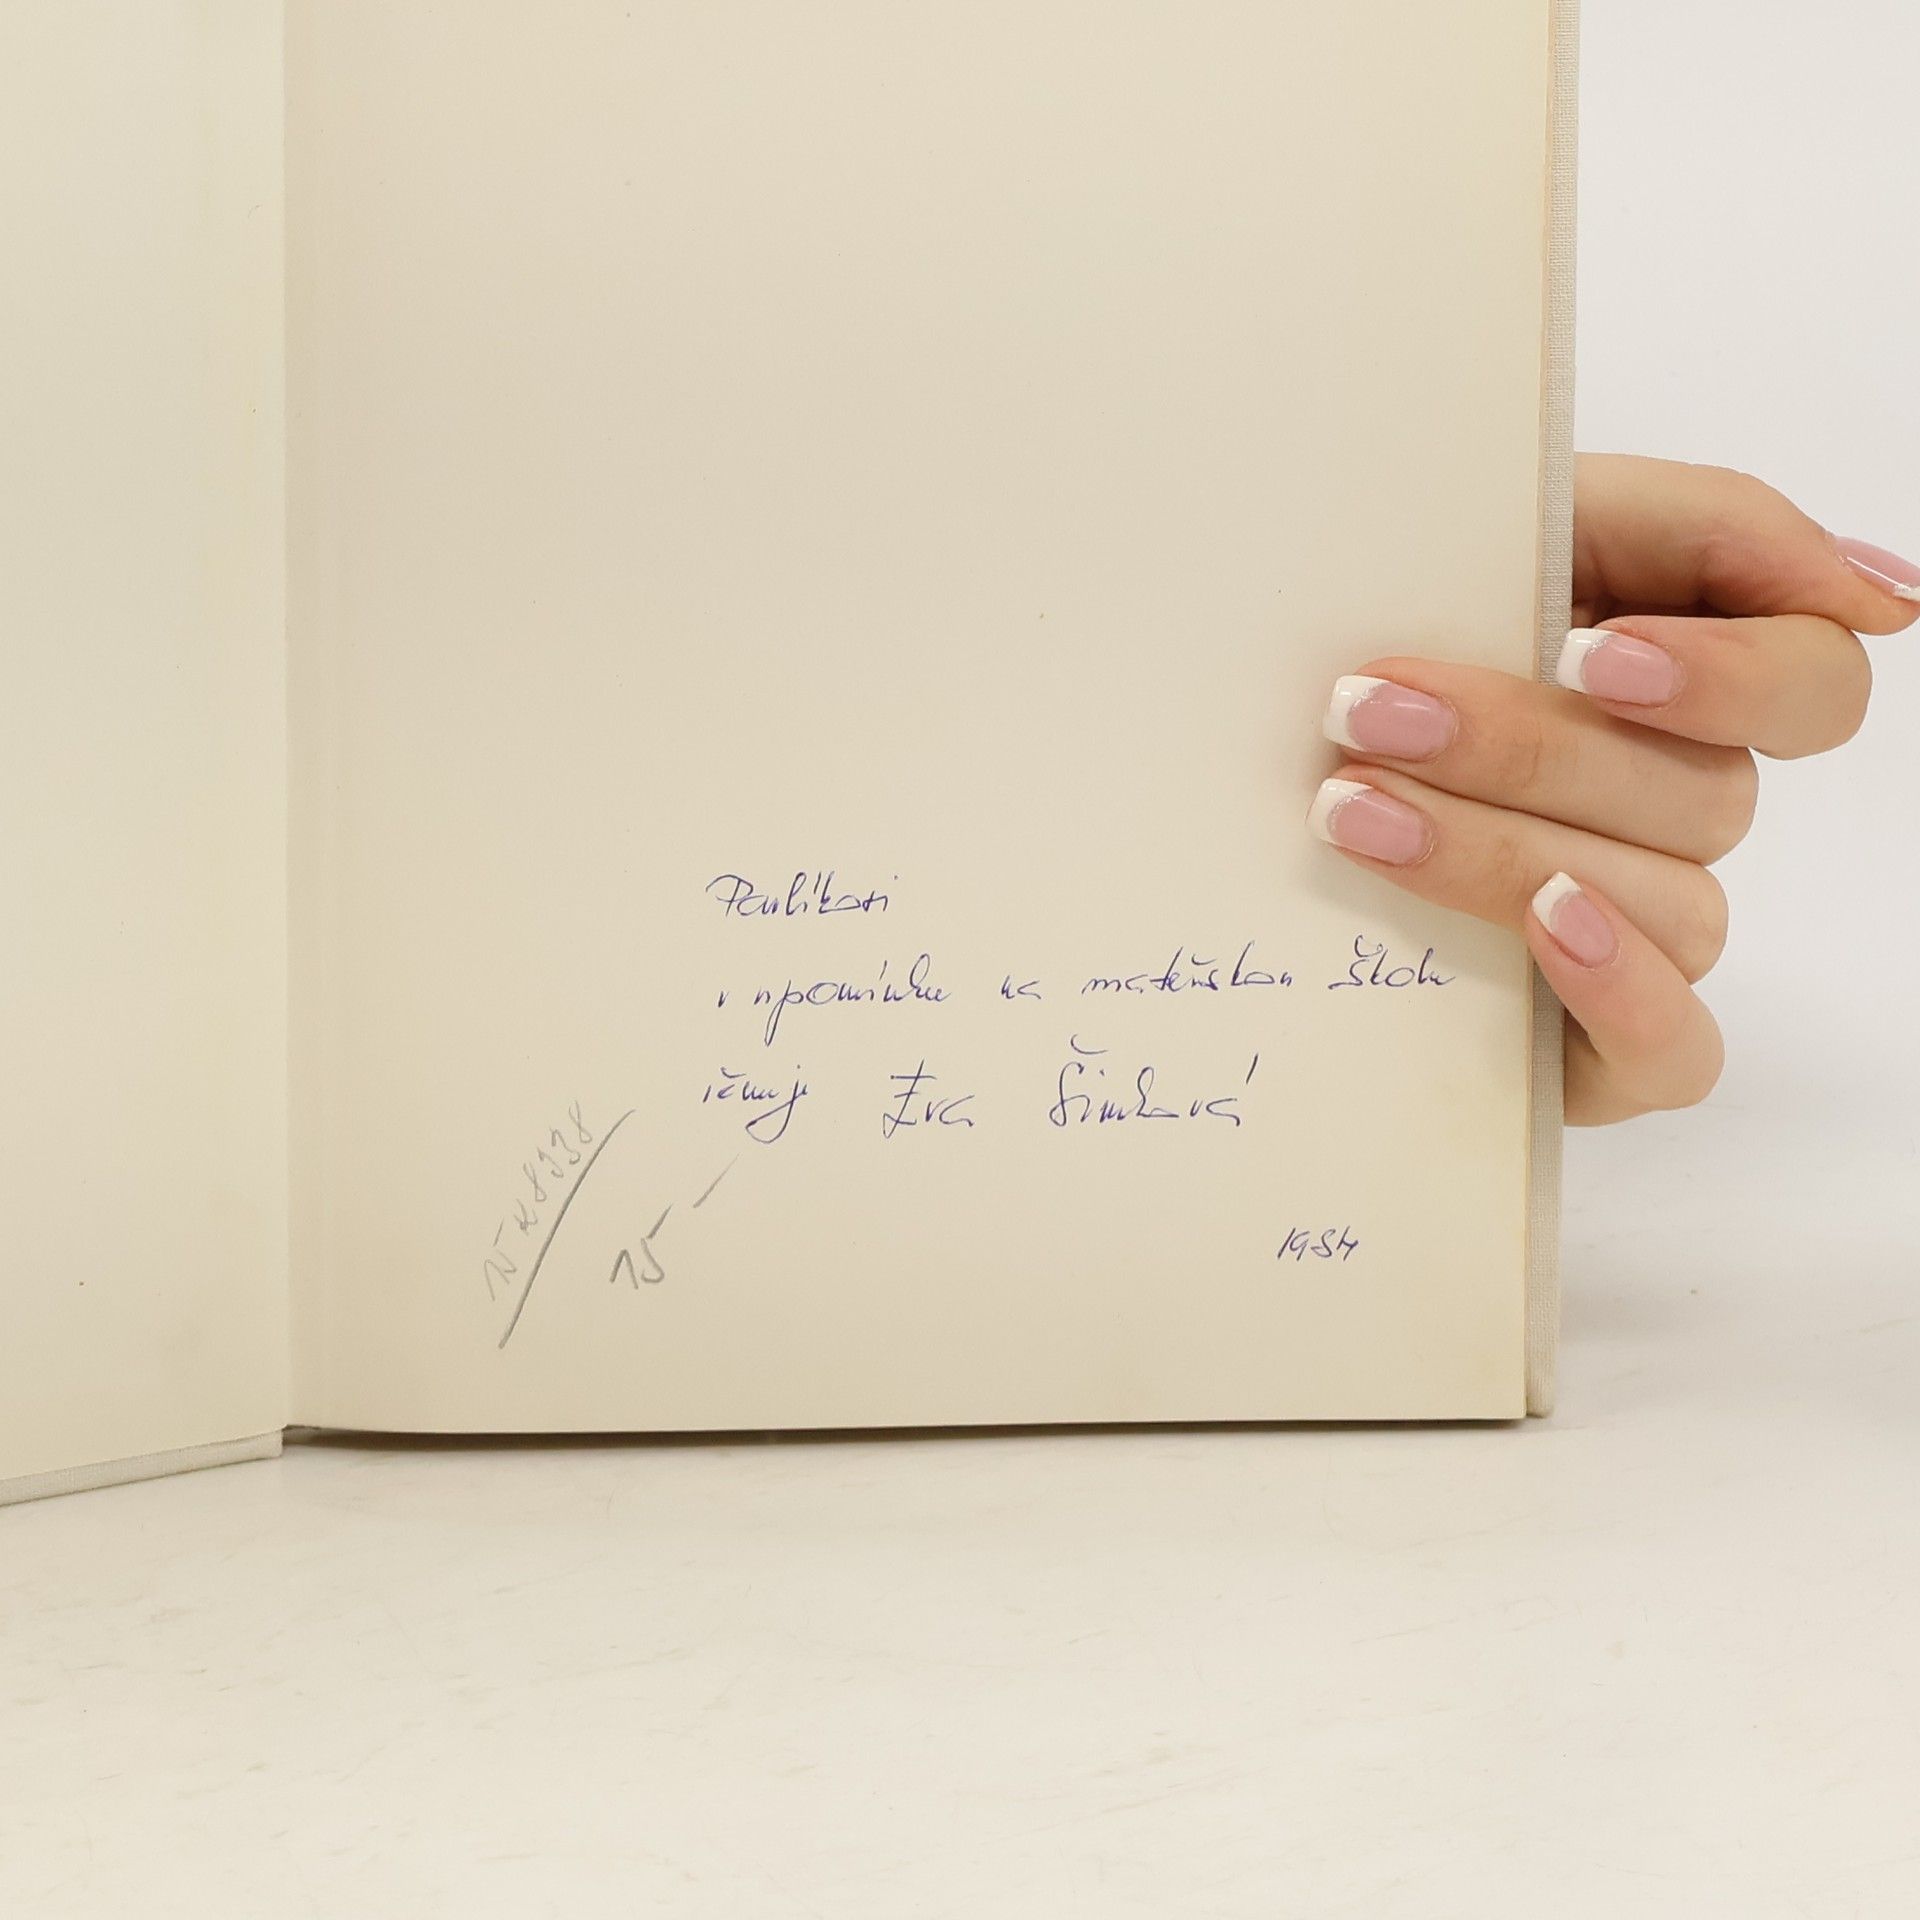 Pavlíkovi
v upomínku na mateřskou školu
věnuje Eva Šimková
15 K 8938
15 —
1984